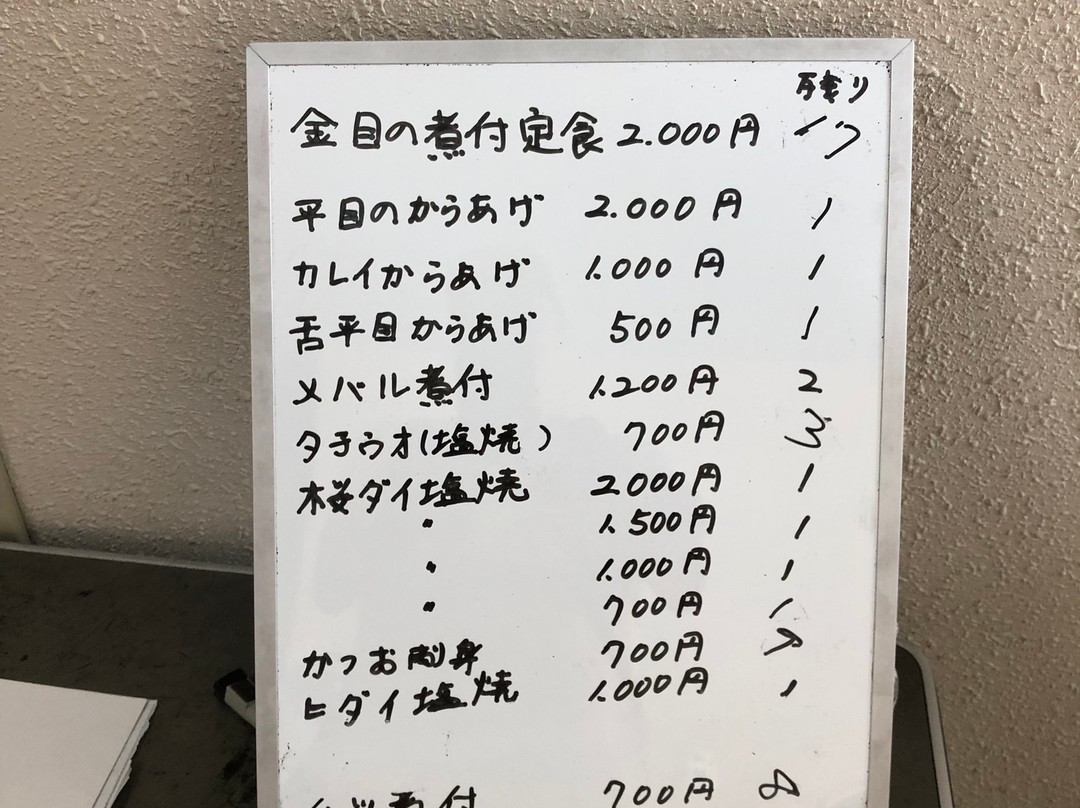 残り
金目の煮付定食 2.000円 17
平目のからあげ 2.000円 1
カレイからあげ 1.000円 1
舌平目からあげ 500円 1
メバル煮付 1.200円 2
タチウオ(塩焼) 700円
桜ダイ塩焼 2000円 1
〃 1.500円 1
〃 1.000円 1
〃 700円 1
かつお刺身 700円
ヒダイ塩焼 1.000円 1
煮付 700円 8